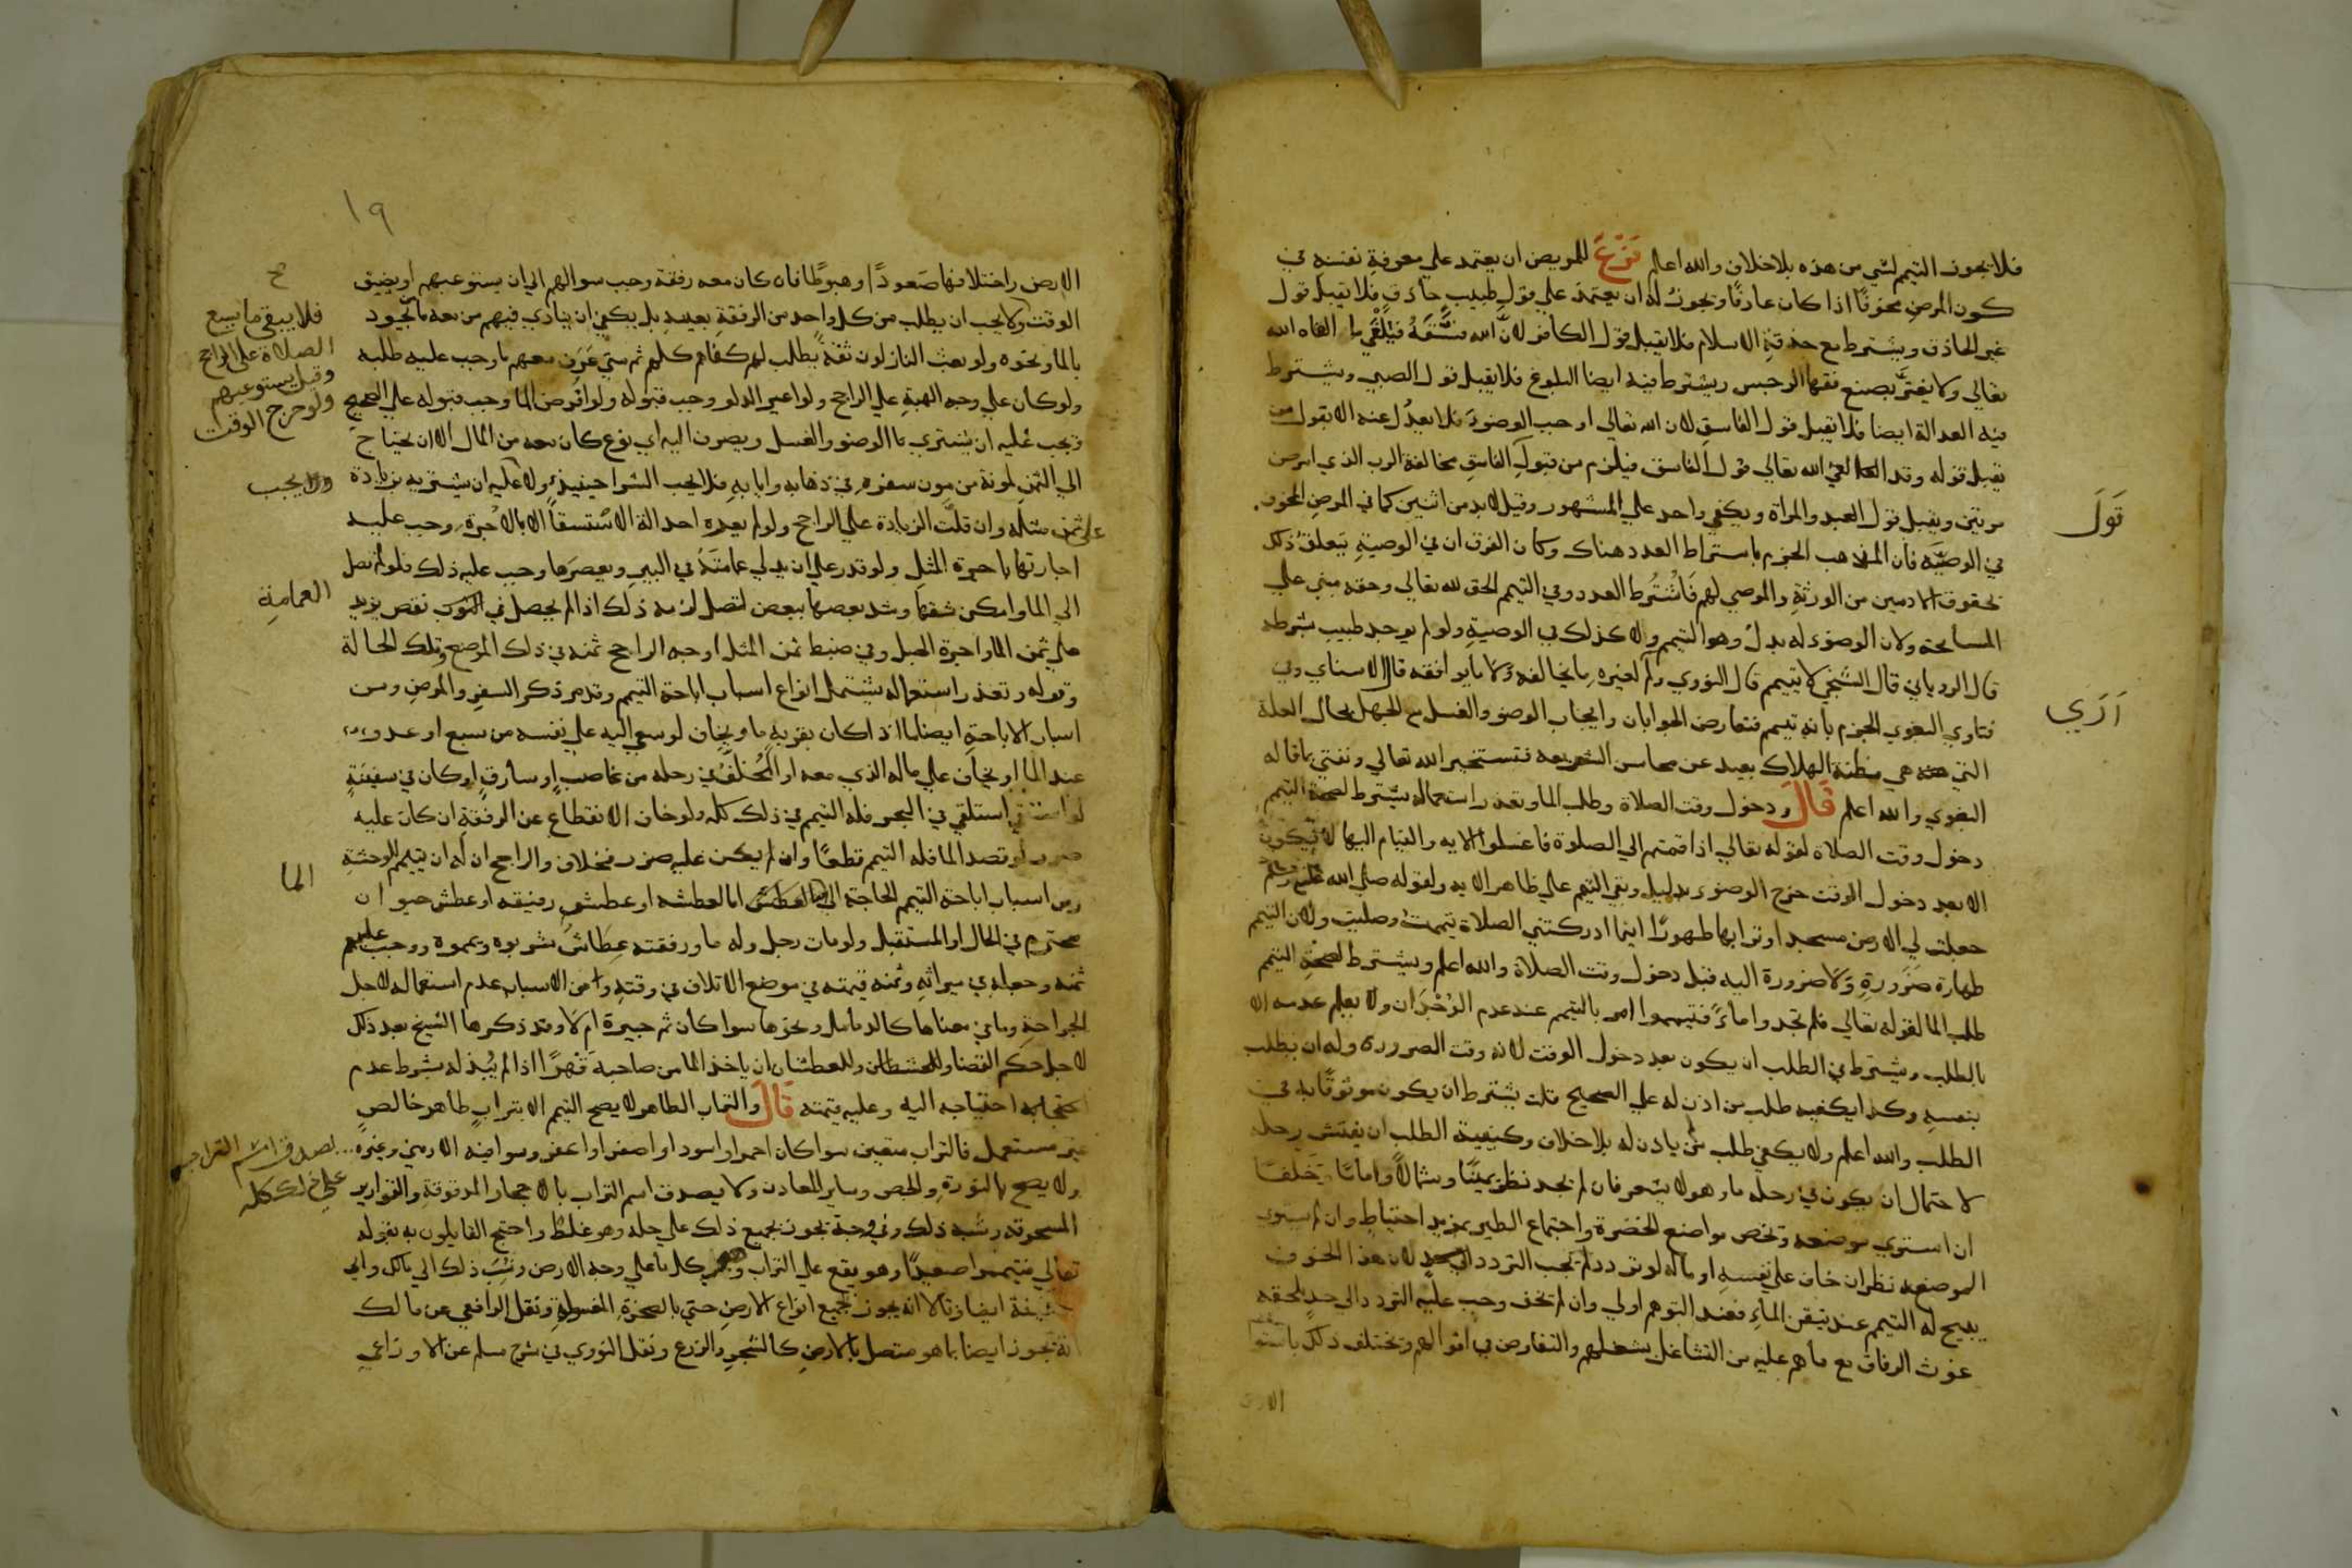 فلا يجوز التيمم لشي من هذه بلا خلاف والله اعلم فَرْعٌ للمريض ان يعتمد علي معرفةِ نفسه في
كون المرض مخوفًا اذا كان عارفًا ويجوز له ان يعتمد علي قول طبيب حاذق فلا تقبل قول
غير الحاذق ويشترط مع حذقة الاسلام فلا يقبل قول الكافر لان الله فسَّقَهُ فيُلْغَي ما الغاه الله
تعالي ولا يغترّ بصنع فقها الرجس ويشترط فيه ايضا البلوغ فلا يقبل قول الصبي ويشترط
فيه العدالة ايضا فلا يقبل قول الفاسق لان الله تعالي اوجب الوضوَ فلا يعدُل عنه الا بقول من
يقبل قوله وقد الغي الله تعالي قول الفاسق فيلزم من قبول الفاسق مخالفة الرب الذي امر من
مرتين ويقبل قول العبد والمراة ويكفي واحد علي المشهور وقيل لا بد من اثنين كما في المرض المخوف
قَولَ
في الوصيَّه فان المذهب الجزم باشتراط العدد هناك وكان الفرق ان في الوصيةِ يتعلق ذلك
بحقوق الادمين من الورثةِ والموصي لهم فاشْتُرط العدد وفي التيمم الحق لله تعالي وحقه مبني علي
المسامحة ولان الوضوء له بدلٌ وهو التيمم ولا كذلك في الوصيةِ ولو لم يوجد طبيب بشرطه
قال الروياني قال السّنجي لا تيمم قال النووي ولم لغيره ما يخالفه ولا ما يوافقه قال الاسناي وفي
اَرَي
فتاوي البغوي الجزم بانه تيمم فتعارض الجوابان وايجاب الوضو والغسل مع الجهل بحال العلة
التي هي مظنة الهلاك بعيد عن محاسن الشريعه فنستخير الله تعالي ونفتي بما قاله
البغوي والله اعلم قَالَ ودخول وقت الصلاة وطلب الما وتعذر استعماله يشترط لصحة التيمم
دخول وقت الصلاة لقوله تعالي اذا قمتم الي الصلوة فاغسلوا الايه والقيام اليها لا يكون
الا بعد دخول الوقت خرج الوضو بدليل وبقي التيمم علي ظاهر الايه ولقوله صلي الله عليه وسلم
جعلت لي الارض مسجدا وترابها طهورًا اينما ادركتني الصلاة تيممتُ وصليت ولان التيمم
طهارة ضَرورةِ وَلا ضرورة اليه قبل دخول وقت الصلاة والله اعلم ويشترط لصحةِ التيمم
طلب الما لقوله تعالي فلم تجدوا ماءً فتيمموا امر بالتيمم عند عدم الوُجْدَان ولا يعلم عدمه الا
بالطلب ويشترط في الطلب ان يكون بعد دخول الوقت لانه وقت الضرورة وله ان يطلب
بنفسهِ وكذا يكفيه طلب من اذن له علي الصحيح قلت يشترط ان يكون موثوقًا به في
الطلب والله اعلم ولا يكفي طلب من لم ياذن له بلا خلاف وكيفية الطلب ان يفتش رحله
لاحتمال ان يكون في رحله ما وهو لا يشعر فان لم يجد نظر يمينًا وشمالًا وامامًا وخلفًا
ان استوي موضعه وتخص مواضع الخضرة واجتماع الطير بمزيد احتياطٍ وان لم يستوي
الموضعه نظر ان خاف علي نفسهِ او ماله لو تردد لم تجب التردد لان هذا الخوف
يبيح له التيمم عند تيقن الماءِ فعند التوهم اولي وان لم تخف وجب عليه التردد الي حدٍ يلحقه
غوث الرفاق مع ما هم عليه من التشاغل بشغلهم والتفاوض في اقوالهم وتختلف ذلك باستوا
الارض
١٩
الارض واختلافها صَعودًا وهبوطًا فان كان معه رفقة وجب سوالهم الي ان يستوعبهم او يضيق
الوقت ولا يجب ان يطلب من كل واحد من الرفقةِ بعينه بل يكفي ان ينادي فيهم من معه ما يجود
فلا يبقي ما يسع
الصلاة علي الراجح
وقيل يستوعبهم
ولو خرج الوقت
بالما ونحوه ولو بعث النازلون ثقةً يطلب لهم كفاهم كلهم ثم متي عَرَف معهم ما وجب عليه طلبه
ولو كان علي وجه الهبةِ علي الراجح ولو اعير الدلو وجب قبوله ولو اقرض الما وجب قبوله علي الصحيح
ويجب عليه ان يشتري ما الوضو والغسل ويصرف اليه اي نوع كان معه من المال الا ان يحتاج
الي الثمن لمونة من مون سفره في ذهابه وايابهِ فلا يجب الشرا حينيذ ولا عليه ان يشتريه بزيادة
ولا يجب
علي ثمن مثله وان قلّت الزيادة علي الراجح ولو لم يعره احد الة الاستسقا الا بالاُجرة وجب عليه
اجارتها باجرة المثل ولو قدر علي ان يدلي عمامته في البير ويعصرها وجب عليه ذلك فلو لم تصل
الي الما وامكن شقها وشد بعضها ببعض لتصل لزمه ذلك اذا لم يحصل في الثوب نقص يزيد
العمامةِ
علي ثمن الما او اجرة الحبل وفي ضبط ثمن المثل اوجه الراجح ثمنه في ذلك الموضع وتلك الحالة
وقوله وتعذر استعماله يشتمل انواع اسباب اباحة التيمم وقد مر ذكر السفر والمرض ومن
اسباب الاباحةِ ايضا ما اذا كان بقربهِ ما ويخاف لو سعي اليه علي نفسه من سبع او عدو
عند الما او يخاف علي ماله الذي معه او المُخلّف في رحله من غاصبٍ او سارقٍ او كان في سفينةٍ
لو استقي استلقي في البحر فله التيمم في ذلك كله ولو خاف الانقطاع عن الرفقةِ ان كان عليه
ضرر لو قصد الما فله التيمم قطعًا وان لم يكن عليه ضرر فخلاف والراجح ان له ان يتيمم للوحشةِ
ومن اسباب اباحة التيمم الحاجة الي العطش اما لعطشه او عطش رفيقه او عطش حيوان
الما
محترم في الحال او المستقبل ولو مات رجل وله ما ورفقته عِطَاش شربوه ويمموه ووجب عليهم
ثمنه وجعله في ميراثهِ وثمنه قيمته في موضع الاتلاف في وقتهِ ومن الاسباب عدم استعماله لاجل
الجراحةِ وما في معناها كالدماميل ونحوها سوا كان ثم جبيرة ام لا وقد ذكرها الشيخ بعد ذلك
لاجل حكم القضا وللعطشان ان ياخذ الما من صاحبهِ قَهرًا اذا لم يبُذله بشرط عدم
احتياجه اليه وعليه قيمته قَالَ والتراب الطاهر لا يصح التيمم الا بترابٍ طاهر خالصٍ
غير مستعمل فالتراب متعين سوا كان احمر او اسود او اصفر او اعفر وسوا فيه الارمني وغيره
لصدق اسم التراب
علي ذلك كله
ولا يصح بالنورةِ والجص وساير المعادن ولا يصدق اسم التراب بالاحجار المدقوقةِ والقوارير
المسحوقه وشبه ذلك وفي وجه يجوز بجميع ذلك علي حله وهو غلطٌ واحتج القايلون به بقوله
تعالي فتيمموا صعيدًا وهو يقع علي التراب وعلي كل ما علي وجه الارض ونُسِبَ ذلك الي مالك وابي
حنيفة ايضا وقالا انه يجوز بجميع انواع الارض حتي بالصخرةِ المغسولةِ ونقل الرافعي عن مالك
انه يجوز ايضا بما هو متصل بالارضِ كالشجرِ والزرع ونقل النووي في شرح مسلم عن الاوزاعي